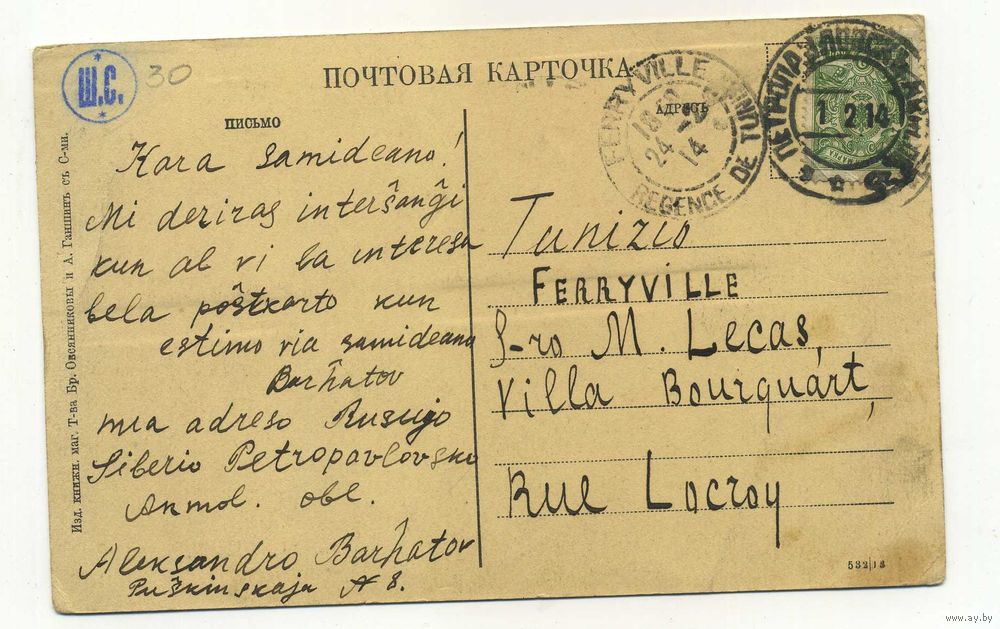 Ш.С.
30
ПОЧТОВАЯ КАРТОЧКА
ПИСЬМО
АДРЕСЪ
FERRYVILLE
REGENCE DE TUNIS
24
14
1 2 14
Kara samideano!
Mi deziras interŝanĝi
kun al vi la interesa
bela poŝtkarto kun
estimo via samideano
Barĥatov
mia adreso Rusujo
Siberio Petropavlovsko
Akmol. obl.
Aleksandro Barĥatov
Puŝkinskaja N 8.
Tunizio
FERRYVILLE
S-ro M. Lecas,
Villa Bourquárt,
Rue Locroy
Изд. книжн. маг. Т-ва Бр. Овсянниковы и А. Ганшинъ съ С-ми.
532|13
www.ay.by